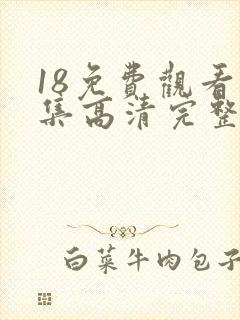 18免費觀看
集高清完整
白菜牛肉包子